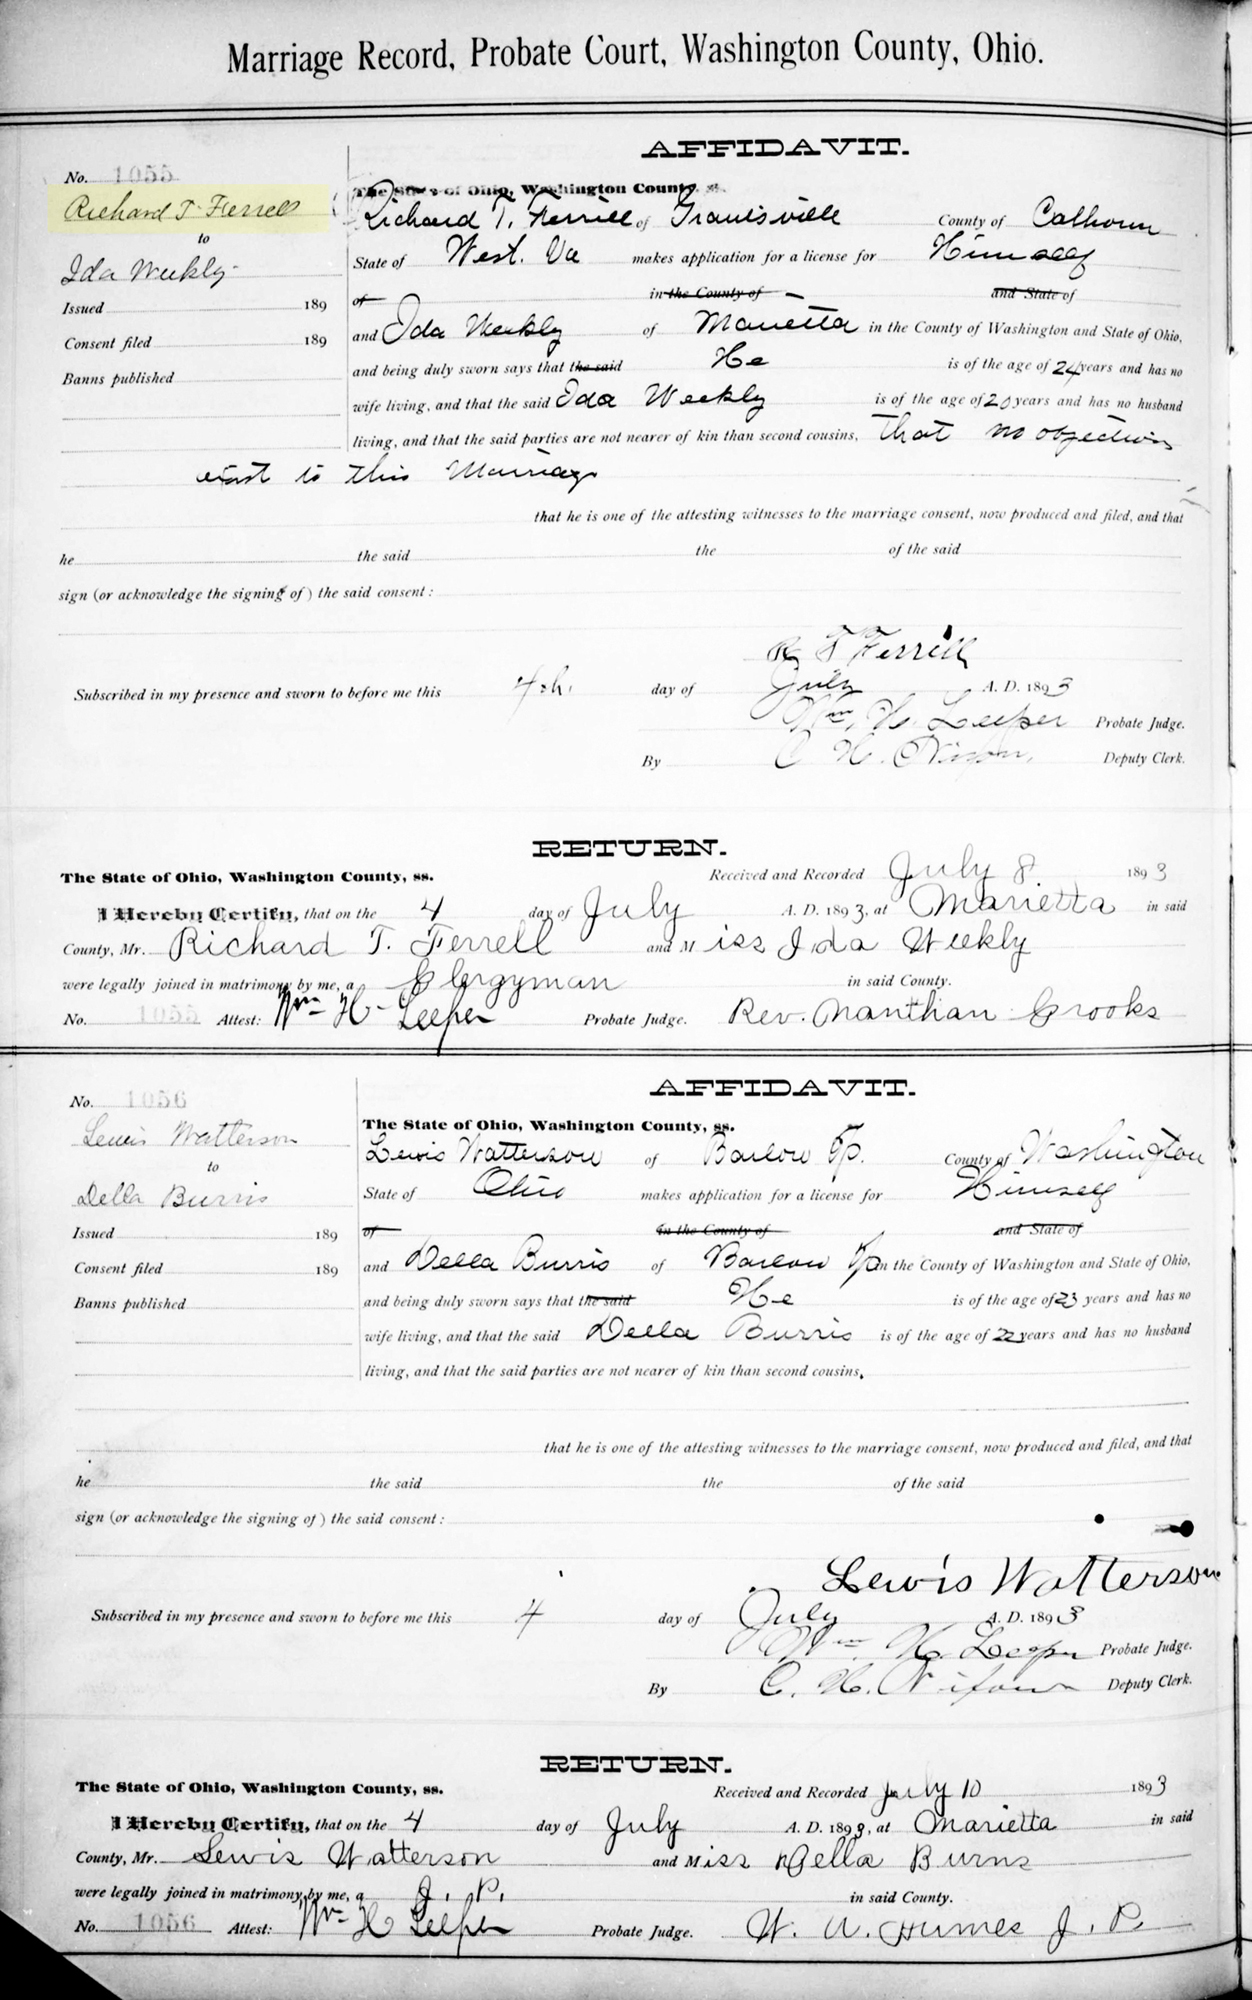 Marriage Record, Probate Court, Washington County, Ohio.
AFFIDAVIT.
No. 1055
Richard T. Ferrell
to
Ida Weekly
Issued 189
Consent filed 189
Banns published
The State of Ohio, Washington County, ss.
Richard T. Ferrill of Grantsville County of Calhoun
State of West. Va makes application for a license for Himself
of in the County of and State of
and Ida Weekly of Marietta in the County of Washington and State of Ohio,
and being duly sworn says that the said He is of the age of 24 years and has no
wife living, and that the said Ida Weekly is of the age of 20 years and has no husband
living, and that the said parties are not nearer of kin than second cousins, that no objection
exist to this Marriage
that he is one of the attesting witnesses to the marriage consent, now produced and filed, and that
he the said the of the said
sign (or acknowledge the signing of) the said consent:
R T Ferrell
Subscribed in my presence and sworn to before me this 4th. day of July A. D. 1893
Wm. H. Leeper Probate Judge.
By C. H. Nixon, Deputy Clerk.
RETURN.
The State of Ohio, Washington County, ss. Received and Recorded July 8 1893
I Hereby Certify, that on the 4 day of July A. D. 1893, at Marietta in said
County, Mr. Richard T. Ferrell and Miss Ida Weekly
were legally joined in matrimony by me, a Clergyman in said County.
No. 1055 Attest: Wm H Leeper Probate Judge. Rev. Manthan Crooks
AFFIDAVIT.
No. 1056
Lewis Watterson
to
Della Burris
Issued 189
Consent filed 189
Banns published
The State of Ohio, Washington County, ss.
Lewis Watterson of Barlow Tp. County of Washington
State of Ohio makes application for a license for Himself
of in the County of and State of
and Della Burris of Barlow Tp in the County of Washington and State of Ohio,
and being duly sworn says that the said He is of the age of 23 years and has no
wife living, and that the said Della Burris is of the age of 22 years and has no husband
living, and that the said parties are not nearer of kin than second cousins,
that he is one of the attesting witnesses to the marriage consent, now produced and filed, and that
he the said the of the said
sign (or acknowledge the signing of) the said consent:
Lewis Watterson
Subscribed in my presence and sworn to before me this 4 day of July A. D. 1893
Wm. H. Leeper Probate Judge.
By C. H. Nixon Deputy Clerk.
RETURN.
The State of Ohio, Washington County, ss. Received and Recorded July 10 1893
I Hereby Certify, that on the 4 day of July A. D. 1893, at Marietta in said
County, Mr. Lewis Watterson and Miss Della Burns
were legally joined in matrimony by me, a J. P. in said County.
No. 1056 Attest: Wm H Leeper Probate Judge. W. A. Humes J. P.